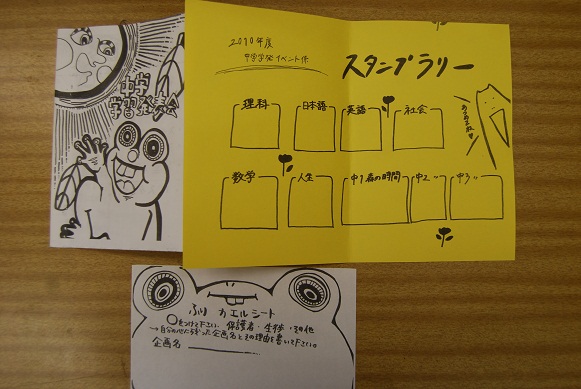 中学
学習発表会
2010年度
中学学発イベント係
スタンプラリー
理科
日本語
英語
社会
数学
人生
中1森の時間
中2〃
中3〃
ふりカエルシート
○をつけて下さい 保護者・生徒・その他
→自分の心に残った企画名とその理由を書いて下さい。
企画名